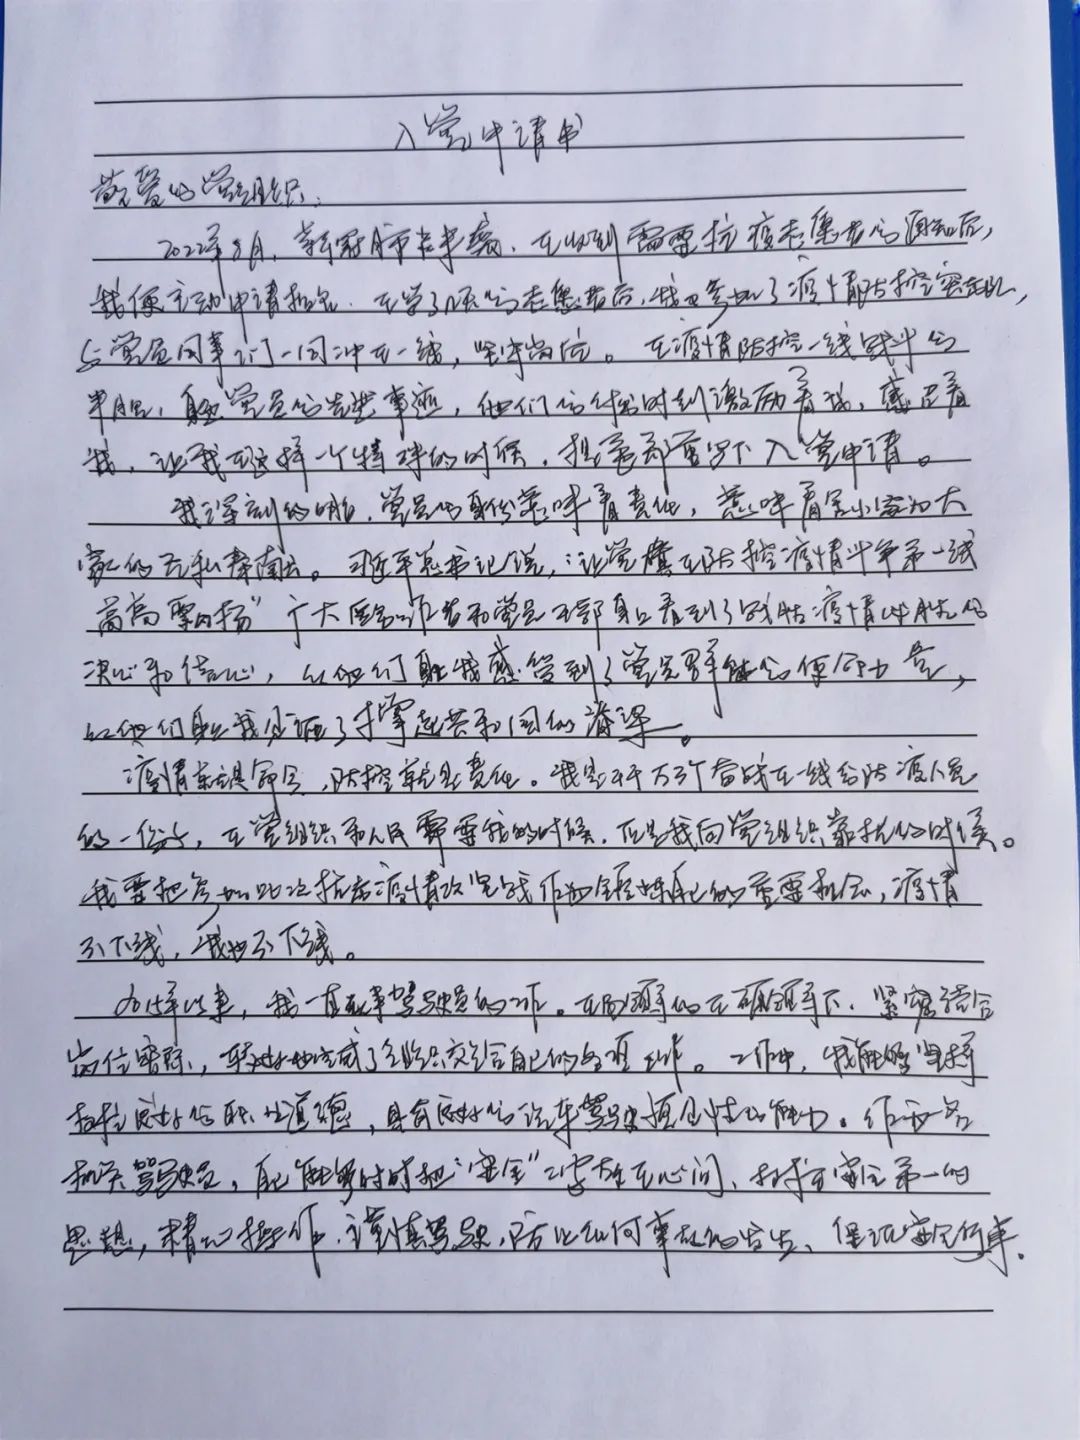 入党申请书
敬爱的党组织:
2022年8月,新冠肺 在收到需要抗疫志愿者的通知后,
我便主动申请报名.在当了 的志愿者后,我又参加了疫情防控突击队,
与党员同事们一同冲在一线,坚守岗位。在疫情防控一线战斗的
半月里,身边党员的先进事迹,他们的付出时刻激励着我,感召着
我,让我在这样一个特殊的时候,提笔郑重写下入党申请。
我深刻的明白,党员的身份意味着责任,意味着舍小家为大
家的无私奉献。习近平总书记说,:让党旗在防控疫情斗争第一线
高高飘扬"广大医务工作者和党员干部身上看到了战胜疫情必胜的
决心和信心,从他们身上我感受到了党员群体的使命力量,
从他们身上我见证了撑起共和国的脊梁。
疫情就是命令,防控就是责任。我是千千万万个奋战在一线的防疫人员
的一份子,在党组织和人民需要我的时候,应是我向党组织靠拢的时候。
我要把参加此次抗击疫情攻坚战作为锤炼自己的重要机会,疫情
不下线,我也不下线。
年以来,我一直从事驾驶员的工作。在 领导的正确领导下,紧密结合
岗位实际,较好地完成了组织交给自己的各项工作。工作中,我能够坚持
良好的职业道德,具有良好的汽车驾驶预见性的能力。作为一名
机关驾驶员,自己能够时时把"安全"二字放在心间,树立安全第一的
思想,精心操作.谨慎驾驶,防止任何事故的发生、保证安全行车.